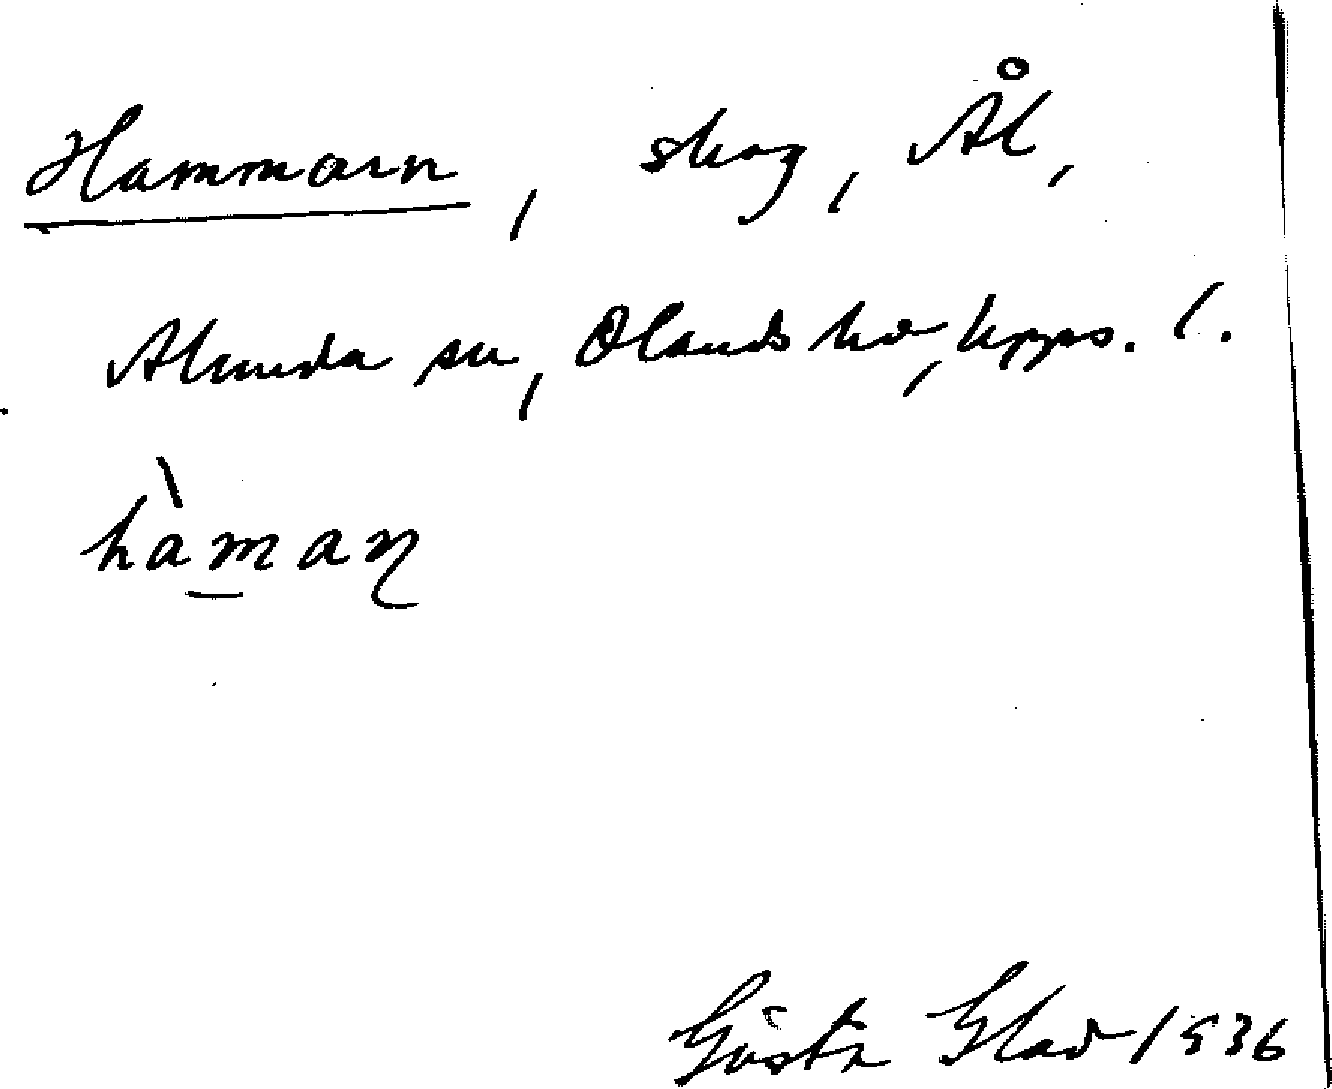 Hammarn, skog, Ål,
Alunda sn, Olands hd, Upps. l.
hàman
Gösta Blad 1936